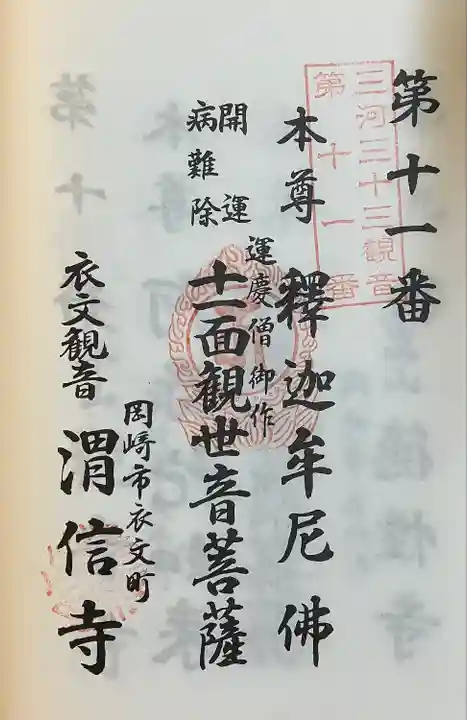 第十一番
三河三十三観音
第十一番
本尊 釋迦牟尼佛
運慶僧御作
十一面観世音菩薩
開運
病難除
岡崎市衣文町
衣文観音 渭信寺